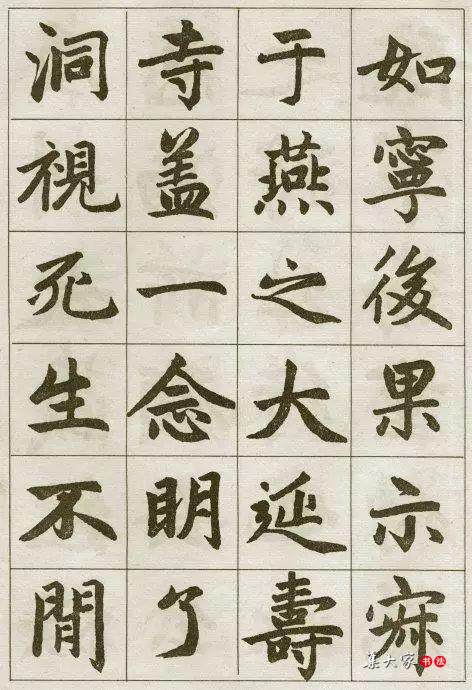 如寧後果示寂
于燕之大延壽
寺盖一念眀了
洞視死生不閒
集大家书法